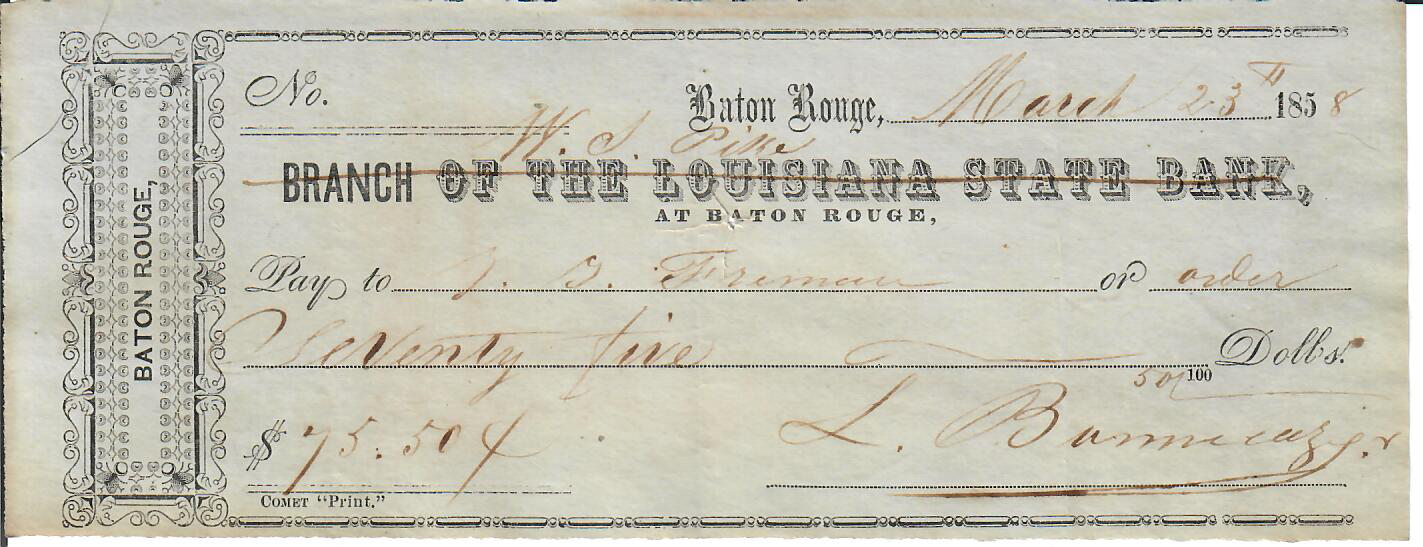 No.
Baton Rouge, March 23 1858
W. S. Pike
BRANCH OF THE LOUISIANA STATE BANK,
AT BATON ROUGE,
Pay to J. J. Freman or order
Seventy five Dolls.
50/100
$ 75.50
L.
COMET "Print."
BATON ROUGE,